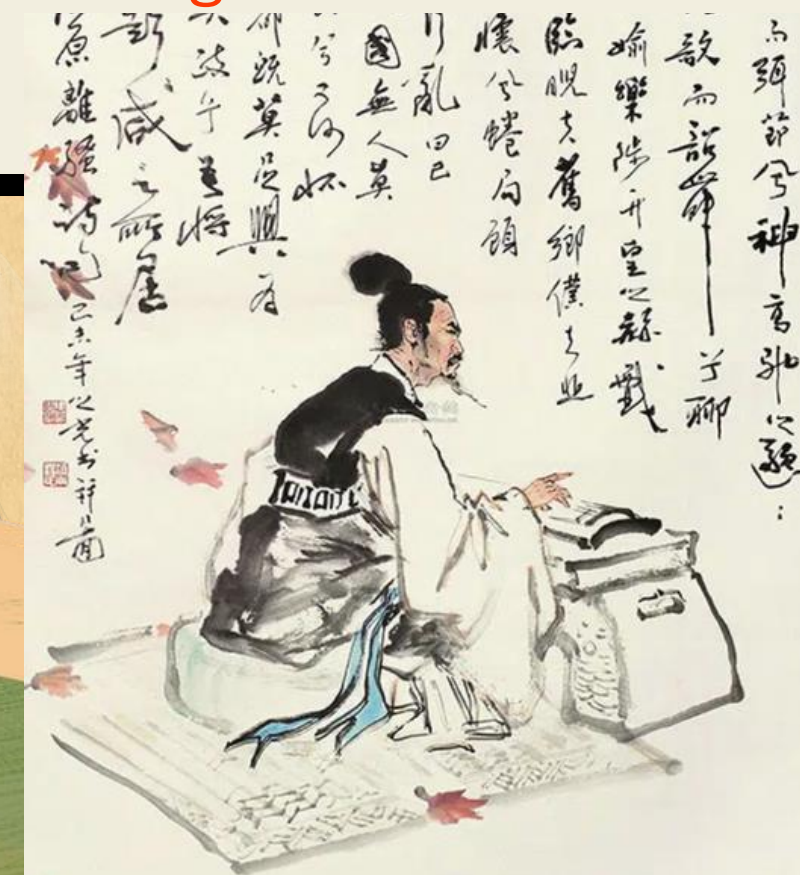 而弭節兮神高馳之邈：
歌而韶舞兮聊
媮樂陟升皇之赫戲
臨睨夫舊鄉僕夫悲
懷兮蜷局顧
行亂曰已
國無人莫
兮又何懷
都既莫足與為
政兮吾將
彭咸之所居
原離騷詩句
己未年之光書